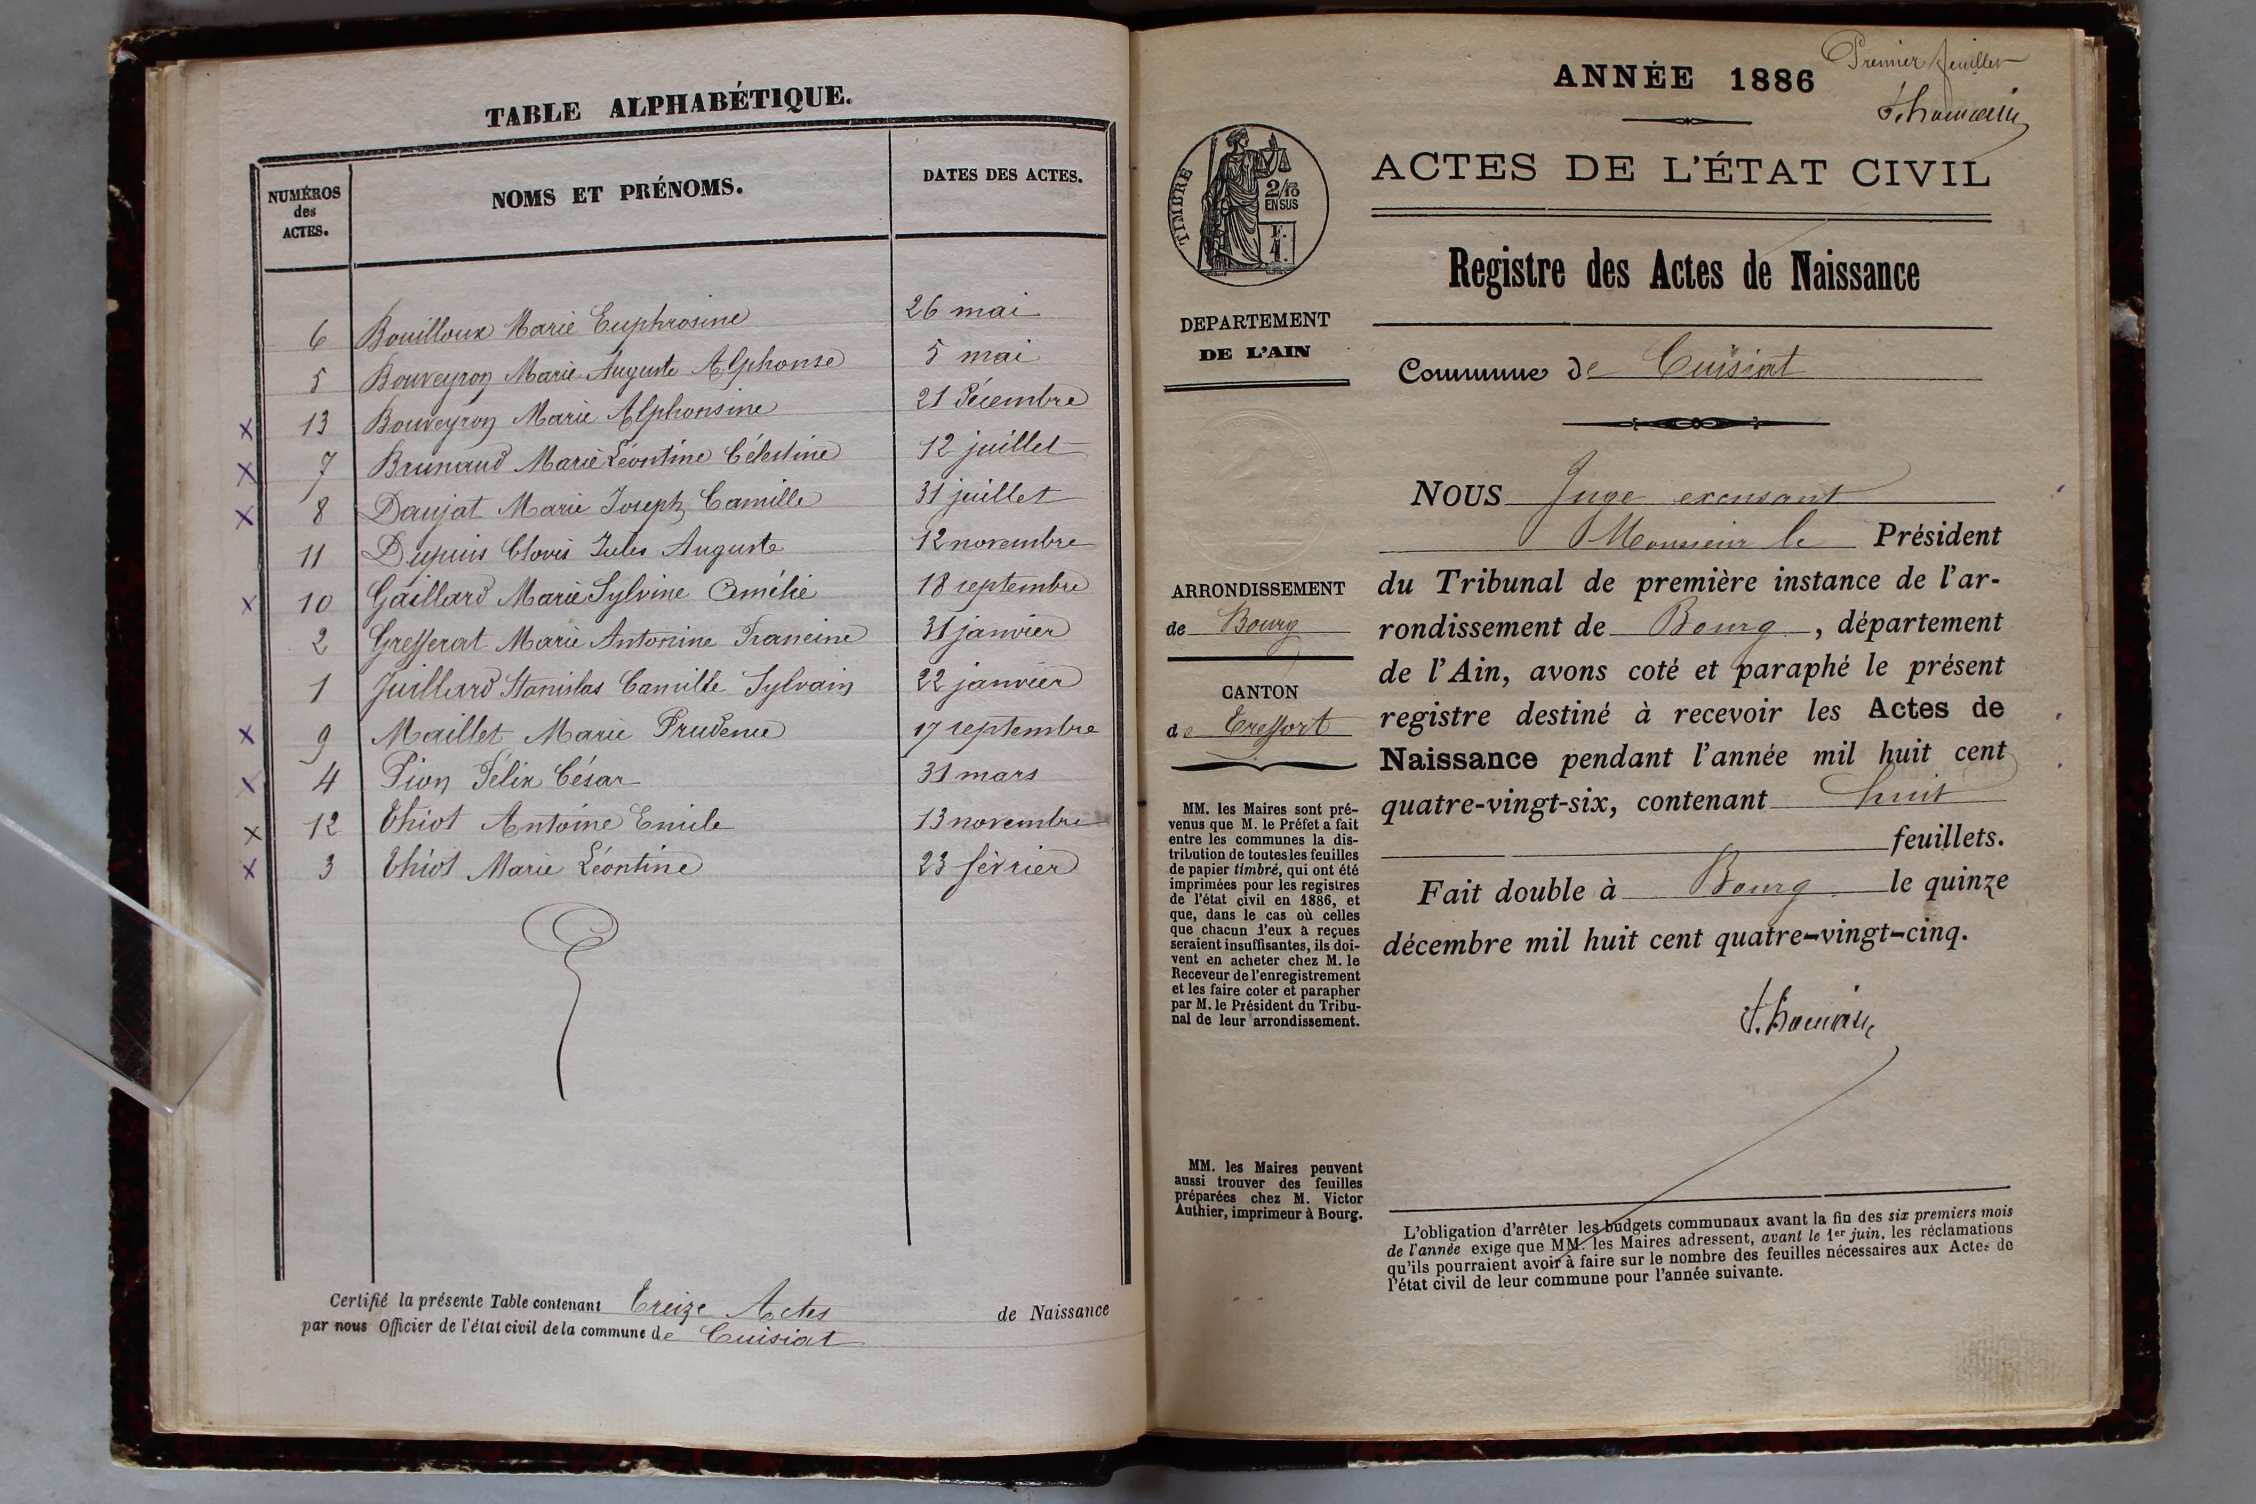 TABLE ALPHABÉTIQUE.
NUMÉROS
des
ACTES.
NOMS ET PRÉNOMS.
DATES DES ACTES.
6 Bouilloux Marie Euphrosine 26 mai
5 Bouveyron Marie Auguste Alphonse 5 mai
x 13 Bouveyron Marie Alphonsine 21 Décembre
x 7 Brunaud Marie Léontine Célestine 12 juillet
x 8 Daujat Marie Joseph Camille 31 juillet
11 Dupuis Clovis Jules Auguste 12 novembre
x 10 Gaillard Marie Sylvine Amélie 18 septembre
2 Grefferat Marie Antonine Francine 31 janvier
1 Juillard Stanislas Camille Sylvain 22 janvier
x 9 Maillet Marie Prudence 17 septembre
x 4 Pion Félix César 31 mars
x 12 Thiot Antoine Emile 13 novembre
x 3 Thiot Marie Léontine 23 février
Certifié la présente Table contenant Treize Actes de Naissance
par nous Officier de l'état civil de la commune de Cuisiat
Premier feuillet
ANNÉE 1886
ACTES DE L'ÉTAT CIVIL
TIMBRE
2/10
EN SUS
Registre des Actes de Naissance
DEPARTEMENT
DE L'AIN
Commune de Cuisiat
ARRONDISSEMENT
de Bourg
CANTON
de Treffort
MM. les Maires sont pré-
venus que M. le Préfet a fait
entre les communes la dis-
tribution de toutes les feuilles
de papier timbré, qui ont été
imprimées pour les registres
de l'état civil en 1886, et
que, dans le cas où celles
que chacun d'eux a reçues
seraient insuffisantes, ils doi-
vent en acheter chez M. le
Receveur de l'enregistrement
et les faire coter et parapher
par M. le Président du Tribu-
nal de leur arrondissement.
MM. les Maires peuvent
aussi trouver des feuilles
préparées chez M. Victor
Authier, imprimeur à Bourg.
NOUS Juge excusant
Monsieur le Président
du Tribunal de première instance de l'ar-
rondissement de Bourg, département
de l'Ain, avons coté et paraphé le présent
registre destiné à recevoir les Actes de
Naissance pendant l'année mil huit cent
quatre-vingt-six, contenant huit
feuillets.
Fait double à Bourg le quinze
décembre mil huit cent quatre-vingt-cinq.
L'obligation d'arrêter les budgets communaux avant la fin des six premiers mois
de l'année exige que MM. les Maires adressent, avant le 1er juin, les réclamations
qu'ils pourraient avoir à faire sur le nombre des feuilles nécessaires aux Actes de
l'état civil de leur commune pour l'année suivante.